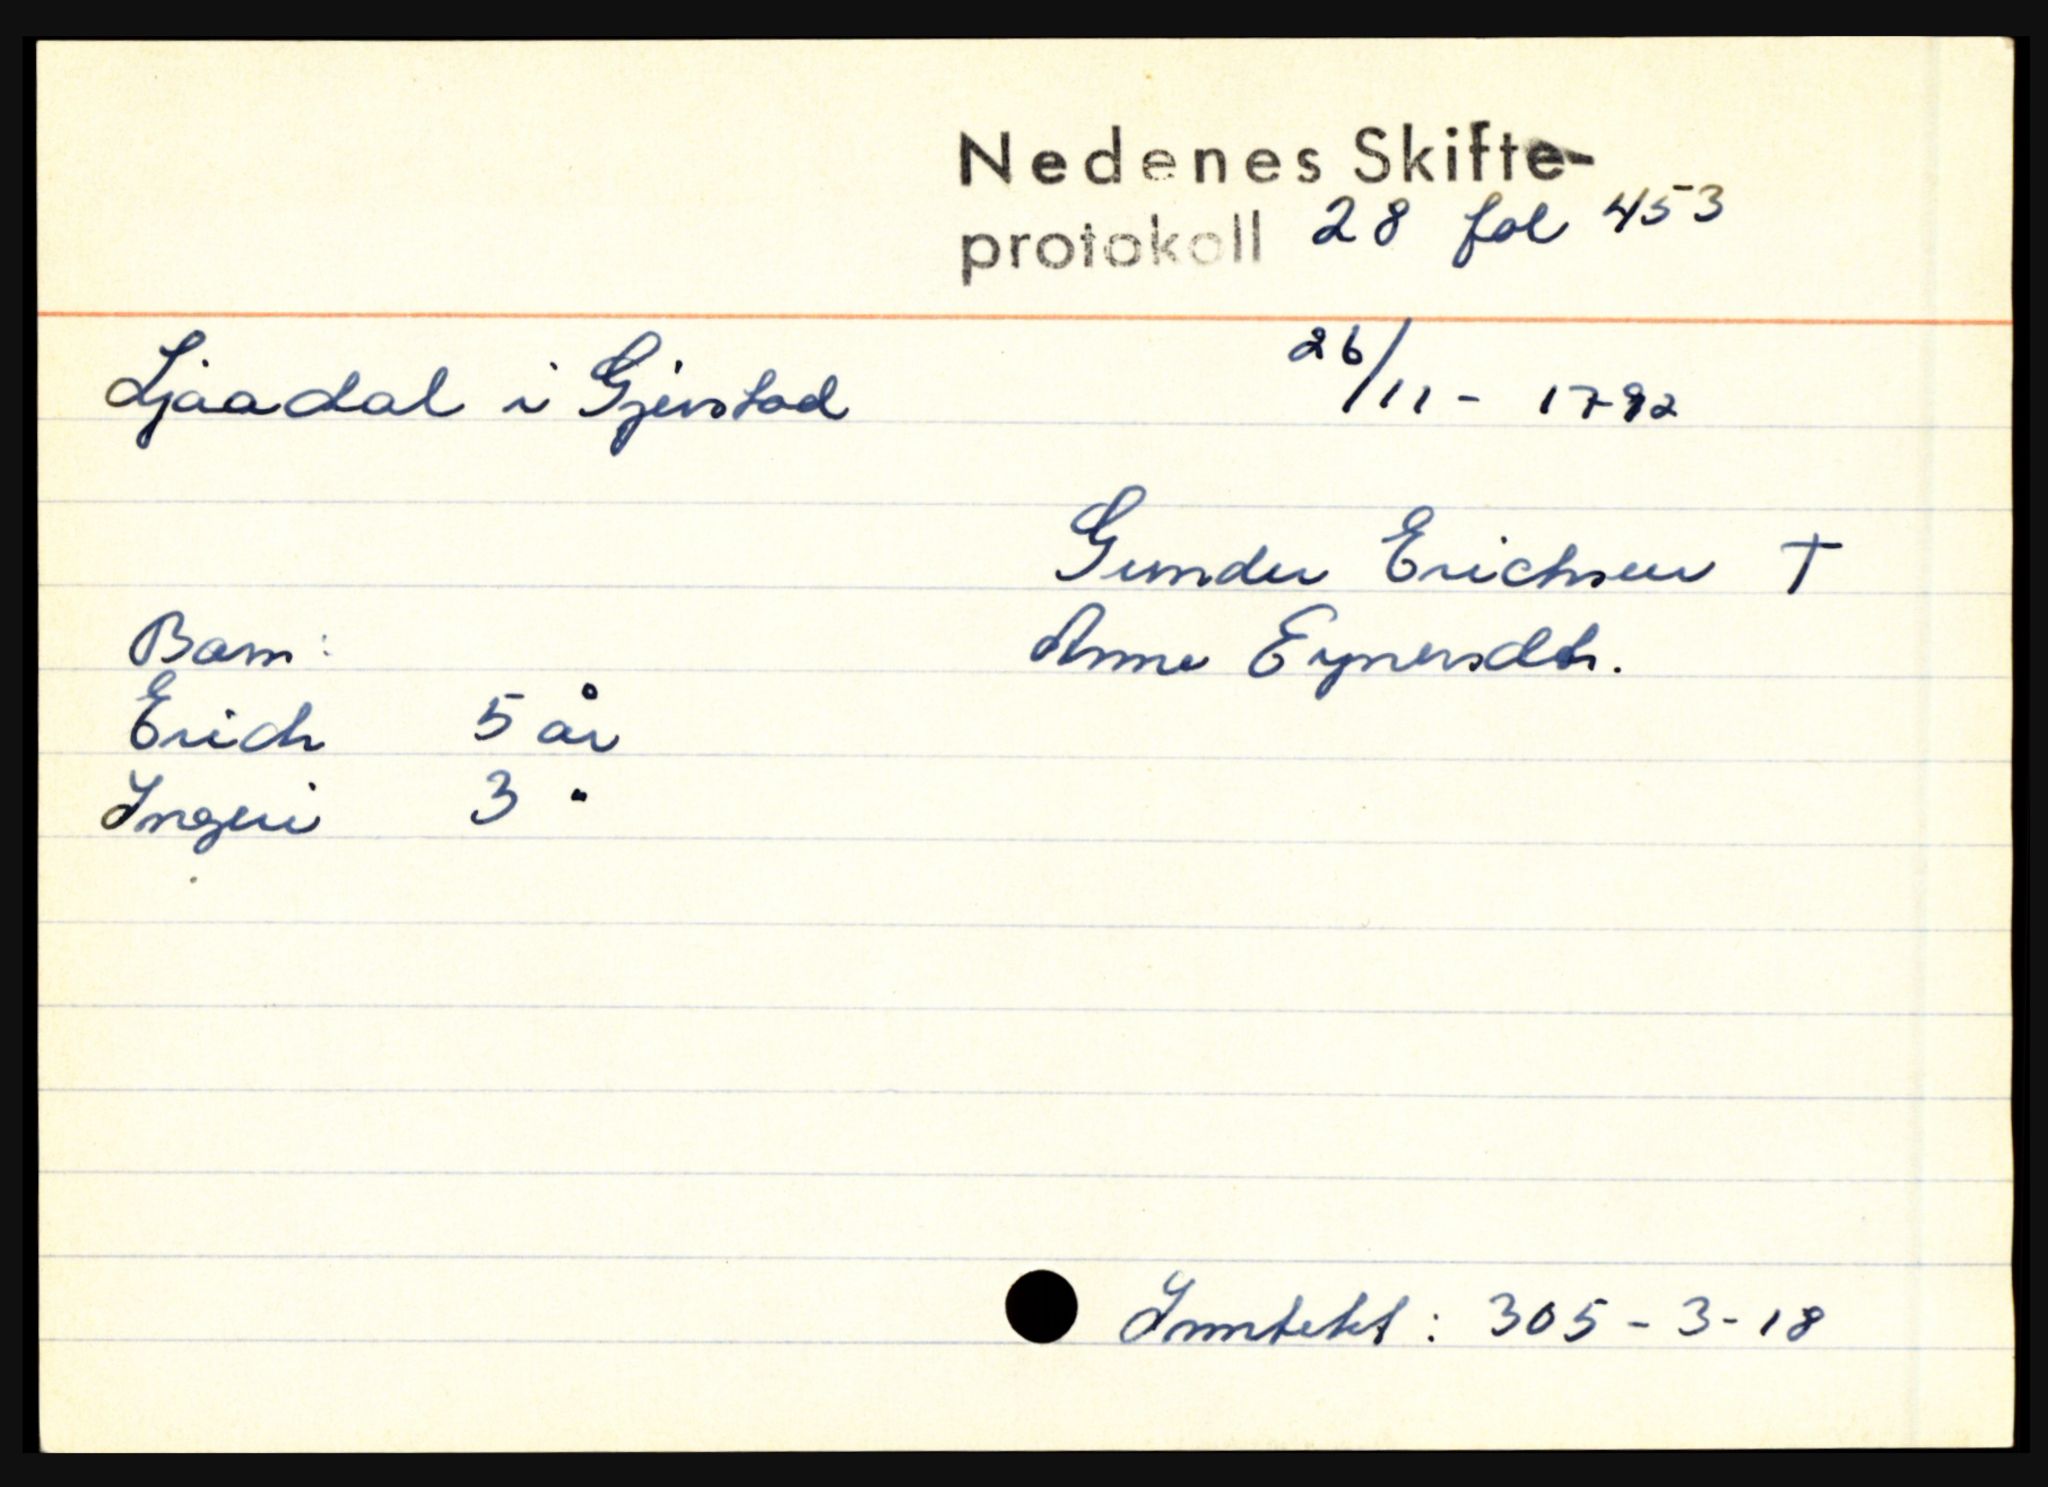 Nedenes Skifte-
protokoll 28 fol 453
Ljaadal i Gjerstad 26/11 - 1792
Gunder Erichsen †
Barn: Anne Eynersdtr.
Erich 5 år
Ingeri 3 "
Inntekt: 305 - 3 - 18